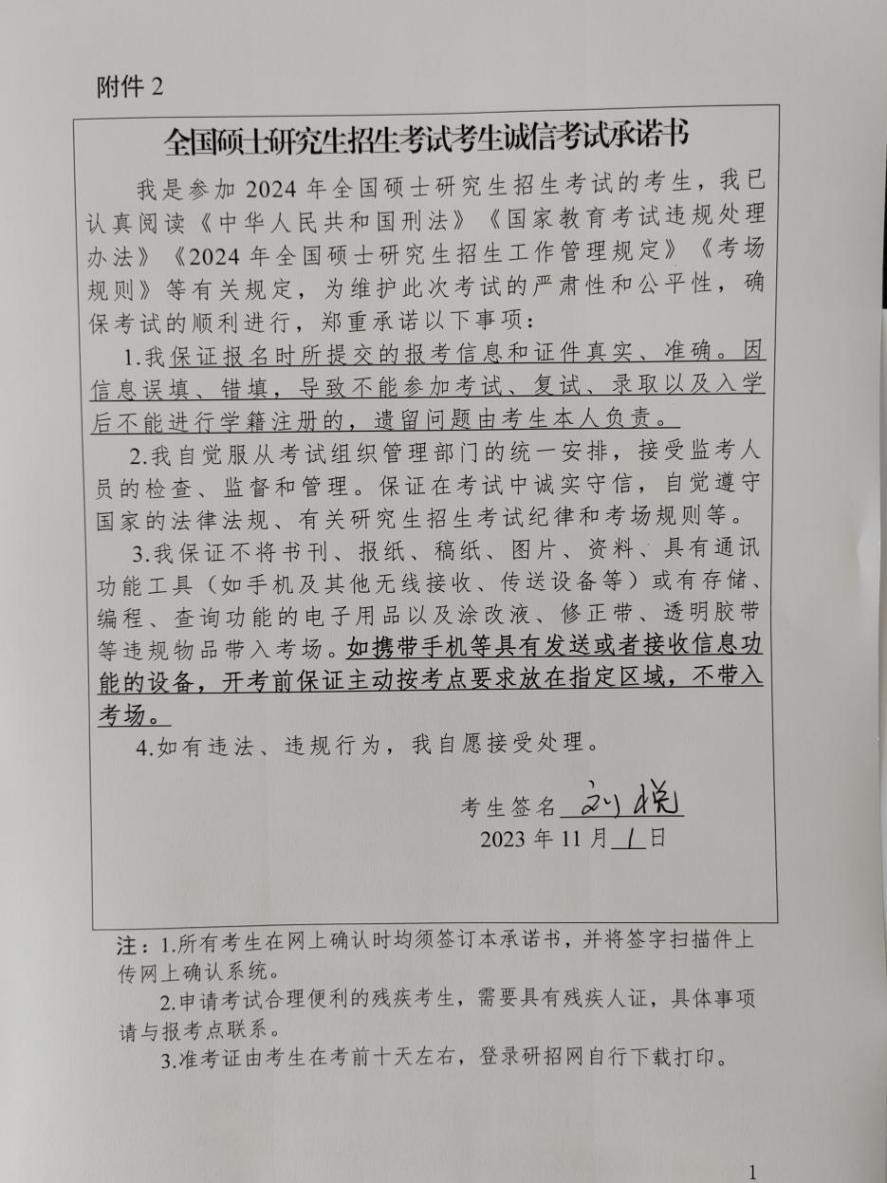 附件 2
全国硕士研究生招生考试考生诚信考试承诺书
我是参加 2024 年全国硕士研究生招生考试的考生，我已
认真阅读《中华人民共和国刑法》《国家教育考试违规处理
办法》《2024 年全国硕士研究生招生工作管理规定》《考场
规则》等有关规定，为维护此次考试的严肃性和公平性，确
保考试的顺利进行，郑重承诺以下事项：
1.我保证报名时所提交的报考信息和证件真实、准确。因
信息误填、错填，导致不能参加考试、复试、录取以及入学
后不能进行学籍注册的，遗留问题由考生本人负责。
2.我自觉服从考试组织管理部门的统一安排，接受监考人
员的检查、监督和管理。保证在考试中诚实守信，自觉遵守
国家的法律法规、有关研究生招生考试纪律和考场规则等。
3.我保证不将书刊、报纸、稿纸、图片、资料、具有通讯
功能工具（如手机及其他无线接收、传送设备等）或有存储、
编程、查询功能的电子用品以及涂改液、修正带、透明胶带
等违规物品带入考场。如携带手机等具有发送或者接收信息功
能的设备，开考前保证主动按考点要求放在指定区域，不带入
考场。
4.如有违法、违规行为，我自愿接受处理。
考生签名 刘悦
2023 年 11 月 1 日
注：1.所有考生在网上确认时均须签订本承诺书，并将签字扫描件上
传网上确认系统。
2.申请考试合理便利的残疾考生，需要具有残疾人证，具体事项
请与报考点联系。
3.准考证由考生在考前十天左右，登录研招网自行下载打印。
1